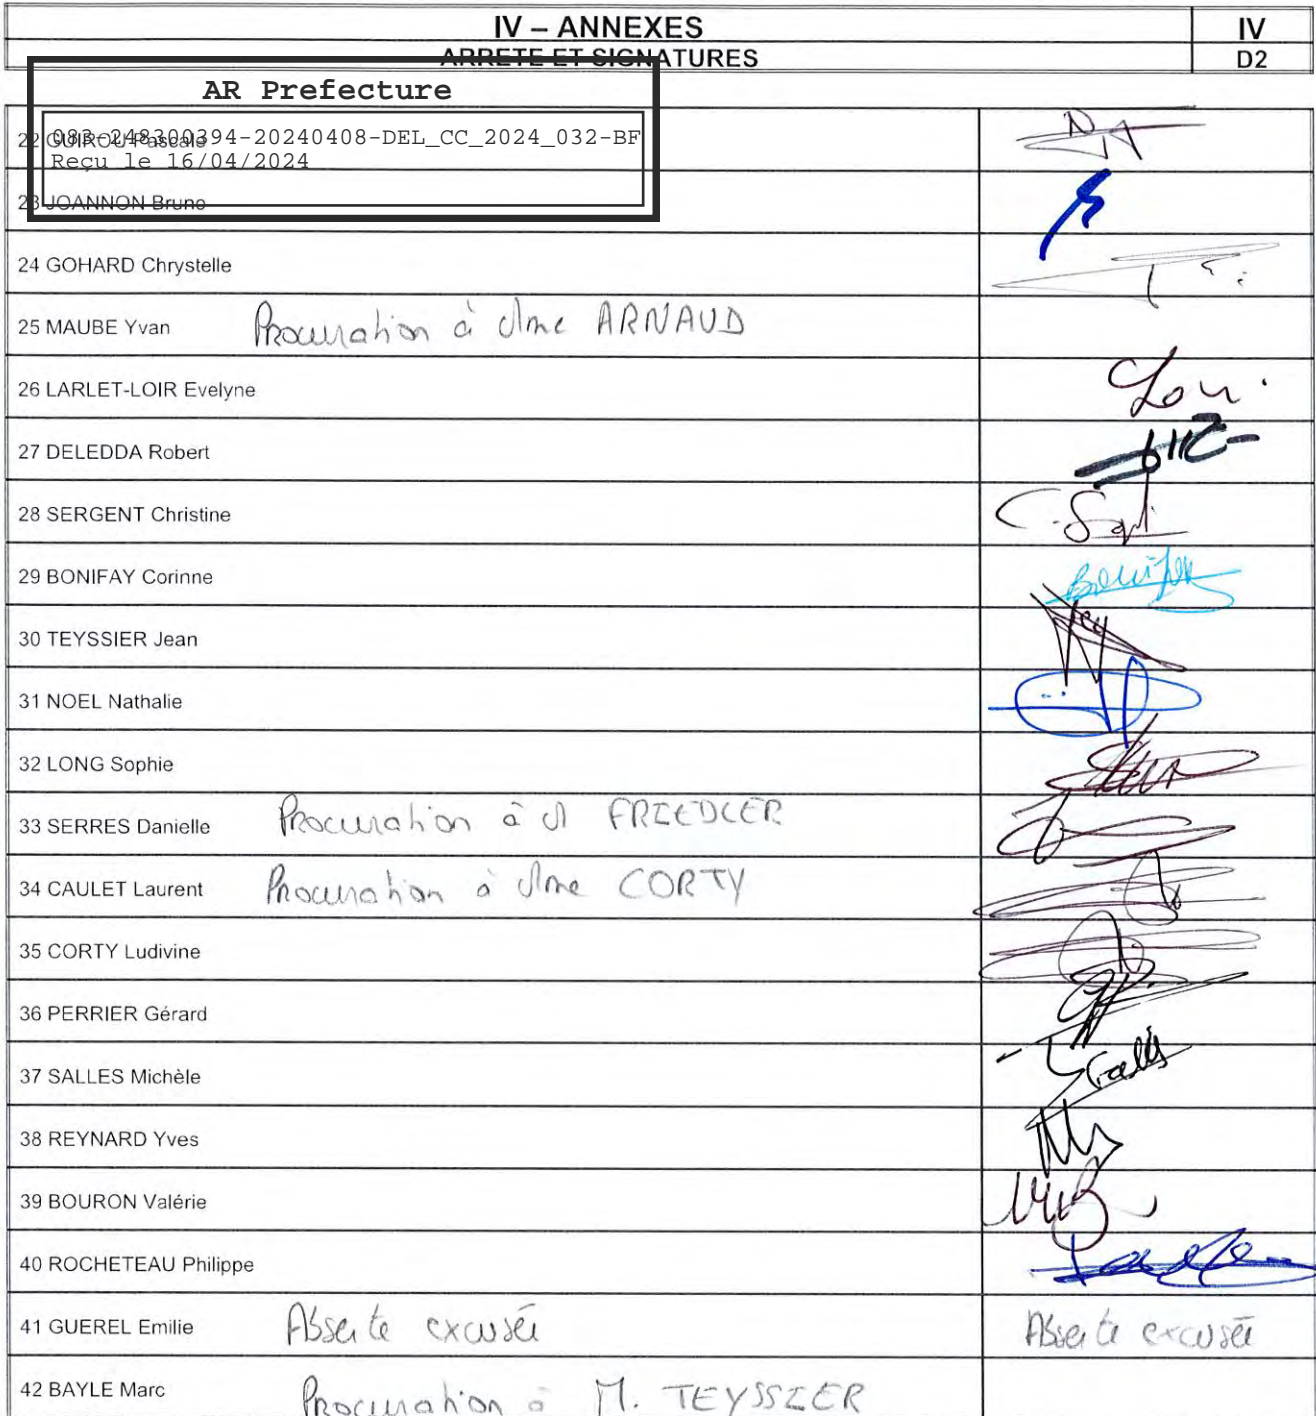 IV – ANNEXES IV
ARRETE ET SIGNATURES D2
AR Prefecture
083-248300394-20240408-DEL_CC_2024_032-BF
Reçu le 16/04/2024
22 GUIROU Pascale
23 JOANNON Bruno
24 GOHARD Chrystelle
25 MAUBE Yvan Procuration à Mme ARNAUD
26 LARLET-LOIR Evelyne
27 DELEDDA Robert
28 SERGENT Christine
29 BONIFAY Corinne
30 TEYSSIER Jean
31 NOEL Nathalie
32 LONG Sophie
33 SERRES Danielle Procuration à M FRIEDLER
34 CAULET Laurent Procuration à Mme CORTY
35 CORTY Ludivine
36 PERRIER Gérard
37 SALLES Michèle
38 REYNARD Yves
39 BOURON Valérie
40 ROCHETEAU Philippe
41 GUEREL Emilie Absente excusée Absente excusée
42 BAYLE Marc Procuration à M. TEYSSIER